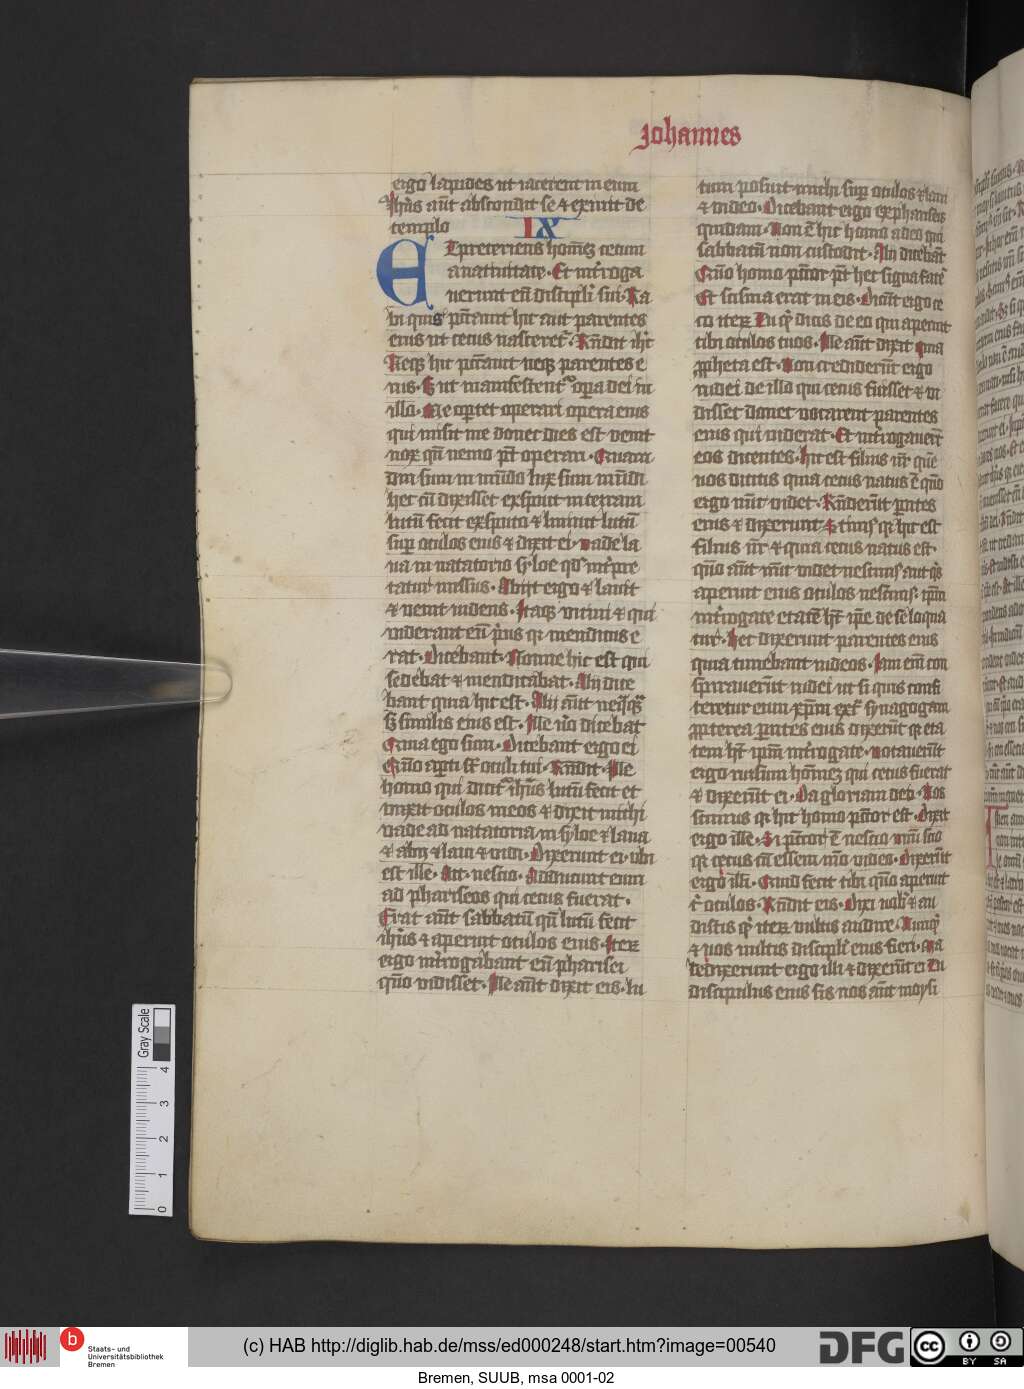 Johannes
ergo lapides ut iacerent in eum
Jhūs aūt abscondit se ⁊ exiuit de
templo IX
ETpreteriens homīeꝫ cecum
a natiuitate. Et int̄roga
uerunt eū discipl̄i sui. Ra
bi quis pec̄cauit hic aut parentes
eius ut cecus nasceret᷑. Rn̄dit ih̄c
Neqꝫ hic pec̄cauit neqꝫ parentes e
ius. S ut manifestent᷑ oꝑa dei in
illo. Me oꝑtet operari opera eius
qui misit me donec dies est venit
nox qn̄ nemo pt̄ operari. Quam
diu sum in mūdo lux sum mūdi
hec cū dixisset exspuit in terram
lutū fecit ex sputo ⁊ liniuit lutū
suꝑ oculos eius ⁊ dixit ei. vade la
ua in natatorio syloe qd̄ int̄pre
tatur missus. Abijt ergo ⁊ lauit
⁊ uenit uidens. Itaqꝫ vicini ⁊ qui
viderant eū pͥus qꝛ mendicus e
rat. Dicebant. Nonne hic est qui
sedebat ⁊ mendicabat. Alij dice
bant quia hic est. Alij aūt neqꝫqᷓꝫ
S similis eius est. Ille u̇o dicebat
Quia ego sum. Dicebant ergo ei
Quo aꝑti st̄ oculi tui. Rn̄dit. Ille
homo qui dicit᷑ ihūs lutū fecit et
vnxit oculos meos ⁊ dixit michi
vade ad natatoria in syloe ⁊ laua
⁊ abij ⁊ laui ⁊ vidi. Dixerunt ei. vbi
est ille. Ait. nescio. Adducunt eum
ad phariseos qui cecus fuerat.
Erat aūt sabbatū qn̄ lutū fecit
ihūs ⁊ aperuit oculos eius. Iteꝝ
ergo int̄rogabant eū pharisei
quo vidisset. Ille aūt dixit eis. lu
tum posuit michi suꝑ oculos ⁊ laui
⁊ video. Dicebant ergo ex phariseis
quidam. Non ē hic homo a deo qui
sabbatū non custodit. Alij dicebāt
Quo homo pec̄cor pt̄ hec signa facͤe
Et scisma erat in eis. Dicūt ergo ce
co iteꝝ Tu qͥ dicis de eo qui aperuit
tibi oculos tuos. Ille aūt dixit quia
ꝓpheta est. Non crediderūt ergo
iudei de illo qui cecus fuisset ⁊ vi
disset donec vocarent parentes
eius qui viderat. Et int̄rogauerūt
eos dicentes. hic est filius ur̄ que
uos dicitis quia cecus natus ē quo
ergo nūc videt. Rn̄derūt pͣntes
eius ⁊ dixerunt Scimꝰ qꝛ hic est
filius nr̄ ⁊ quia cecus natus est.
quo aūt nūc videt nescimꝰ aut qͥs
aperuit eius oculos nescimꝰ. ip̄m
int̄rogate etatē hꝫ ip̄e de se loqua
tur. Hec dixerunt parentes eius
quia timebant iudeos. Iam em̄ con
spirauerūt iudei ut si quis confi
teretur eum xp̄m ext᷑ synagogam
ꝓpterea pͣntes eius dixerūt qꝛ eta
tem hꝫ ip̄m int̄rogate. vocauerūt
ergo rursum homīeꝫ qui cecus fuerat
⁊ dixerūt ei. Da gloriam deo. Nos
scimus qꝛ hic homo pec̄cor est. Dixit
ergo ille. Si pec̄cor ē nescio vnū scio
qꝛ cecus cū essem mo̊ video. Dixerūt
ergo illi. Quid fecit tibi quo aperuit
t᷑ oculos. Rn̄dit eis. Dixi uobꝭ ⁊ au
distis qͥ iteꝝ vultis audire. Nunqͥ
⁊ uos vultis discipl̄i eius fieri. Ma
ledixerunt ergo illi ⁊ dixerūt ei Tu
discipulus eius sis nos aūt moysi
Gray Scale
0 1 2 3 4
Staats- und
Universitätsbibliothek
Bremen
(c) HAB http://diglib.hab.de/mss/ed000248/start.htm?image=00540
DFG
cc BY SA
Bremen, SUUB, msa 0001-02